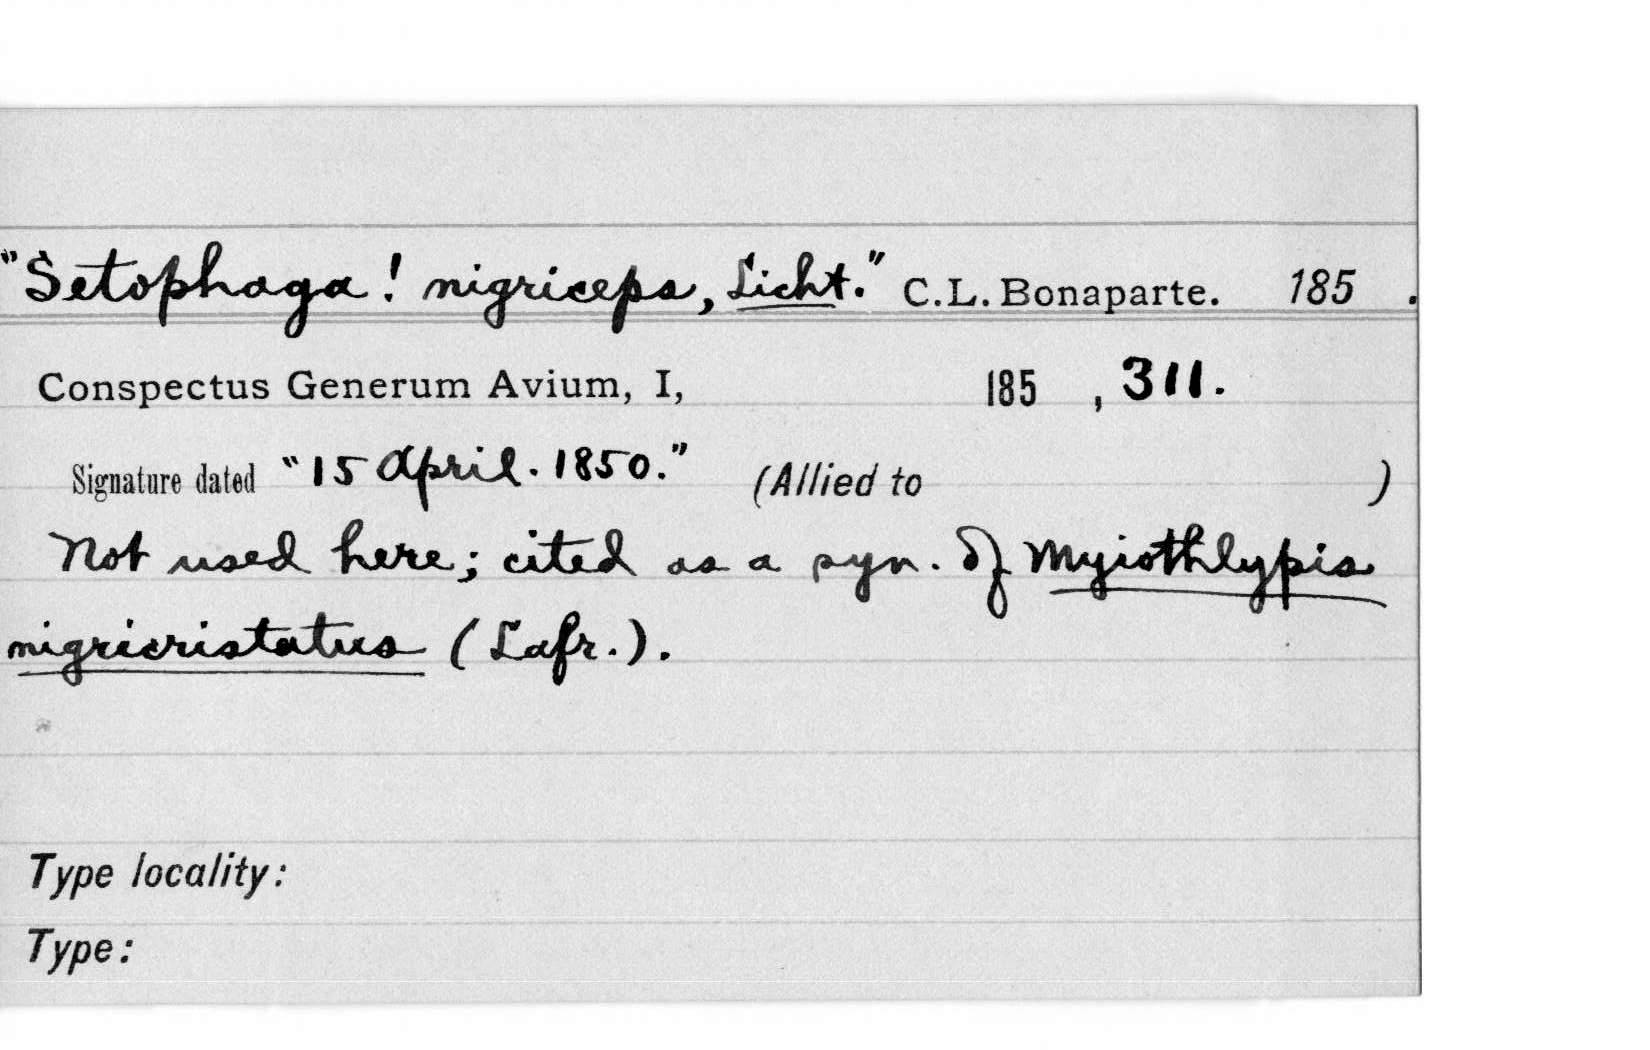 "Setophaga! nigriceps, Licht." C. L. Bonaparte. 185 .
Conspectus Generum Avium, I, 185 , 311.
Signature dated "15 April. 1850." (Allied to )
Not used here; cited as a syn. of Myiothlypis
nigricristatus (Lafr.).
Type locality:
Type: